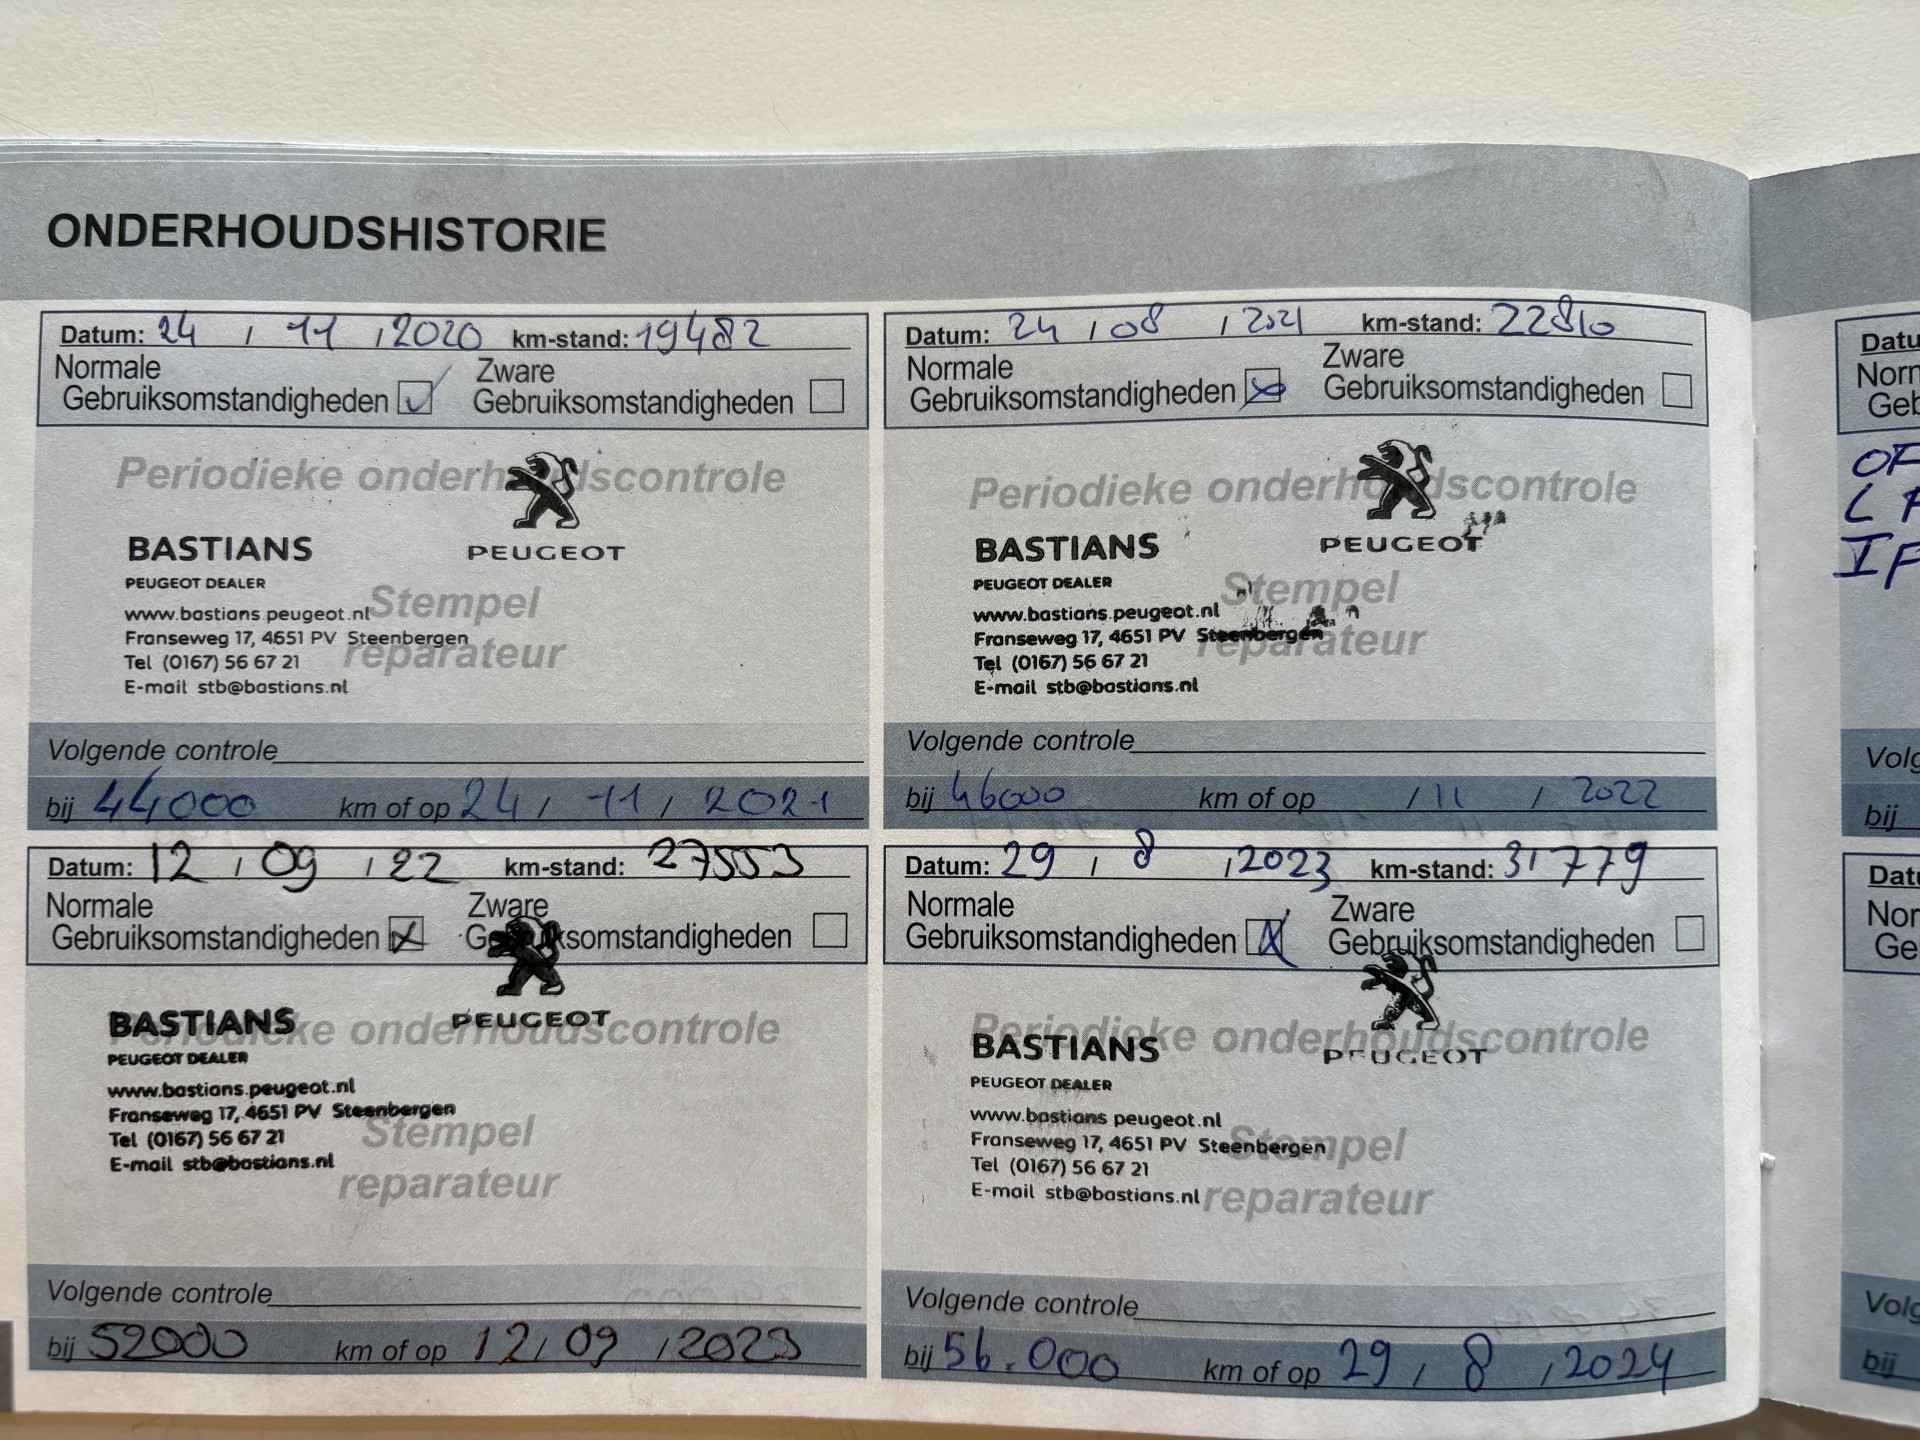 ONDERHOUDSHISTORIE
Datum: 24 / 11 / 2020 km-stand: 19482
Normale Zware
Gebruiksomstandigheden Gebruiksomstandigheden
Periodieke onderhoudscontrole
BASTIANS PEUGEOT
PEUGEOT DEALER
Stempel
www.bastians.peugeot.nl
Franseweg 17, 4651 PV Steenbergen
reparateur
Tel (0167) 56 67 21
E-mail stb@bastians.nl
Volgende controle
bij 44000 km of op 24 / 11 / 2021
Datum: 24 / 08 / 2021 km-stand: 22810
Normale Zware
Gebruiksomstandigheden Gebruiksomstandigheden
Periodieke onderhoudscontrole
BASTIANS PEUGEOT
PEUGEOT DEALER
Stempel
www.bastians.peugeot.nl
Franseweg 17, 4651 PV Steenbergen
reparateur
Tel (0167) 56 67 21
E-mail stb@bastians.nl
Volgende controle
bij 46000 km of op / 11 / 2022
Datum: 12 / 09 / 22 km-stand: 27553
Normale Zware
Gebruiksomstandigheden Gebruiksomstandigheden
Periodieke onderhoudscontrole
BASTIANS PEUGEOT
PEUGEOT DEALER
www.bastians.peugeot.nl
Franseweg 17, 4651 PV Steenbergen
Stempel
Tel (0167) 56 67 21
E-mail stb@bastians.nl
reparateur
Volgende controle
bij 52000 km of op 12 / 09 / 2023
Datum: 29 / 8 / 2023 km-stand: 31779
Normale Zware
Gebruiksomstandigheden Gebruiksomstandigheden
Periodieke onderhoudscontrole
BASTIANS PEUGEOT
PEUGEOT DEALER
www.bastians.peugeot.nl
Franseweg 17, 4651 PV Steenbergen
Stempel
Tel (0167) 56 67 21
E-mail stb@bastians.nl
reparateur
Volgende controle
bij 56.000 km of op 29 / 8 / 2024
bij
bij